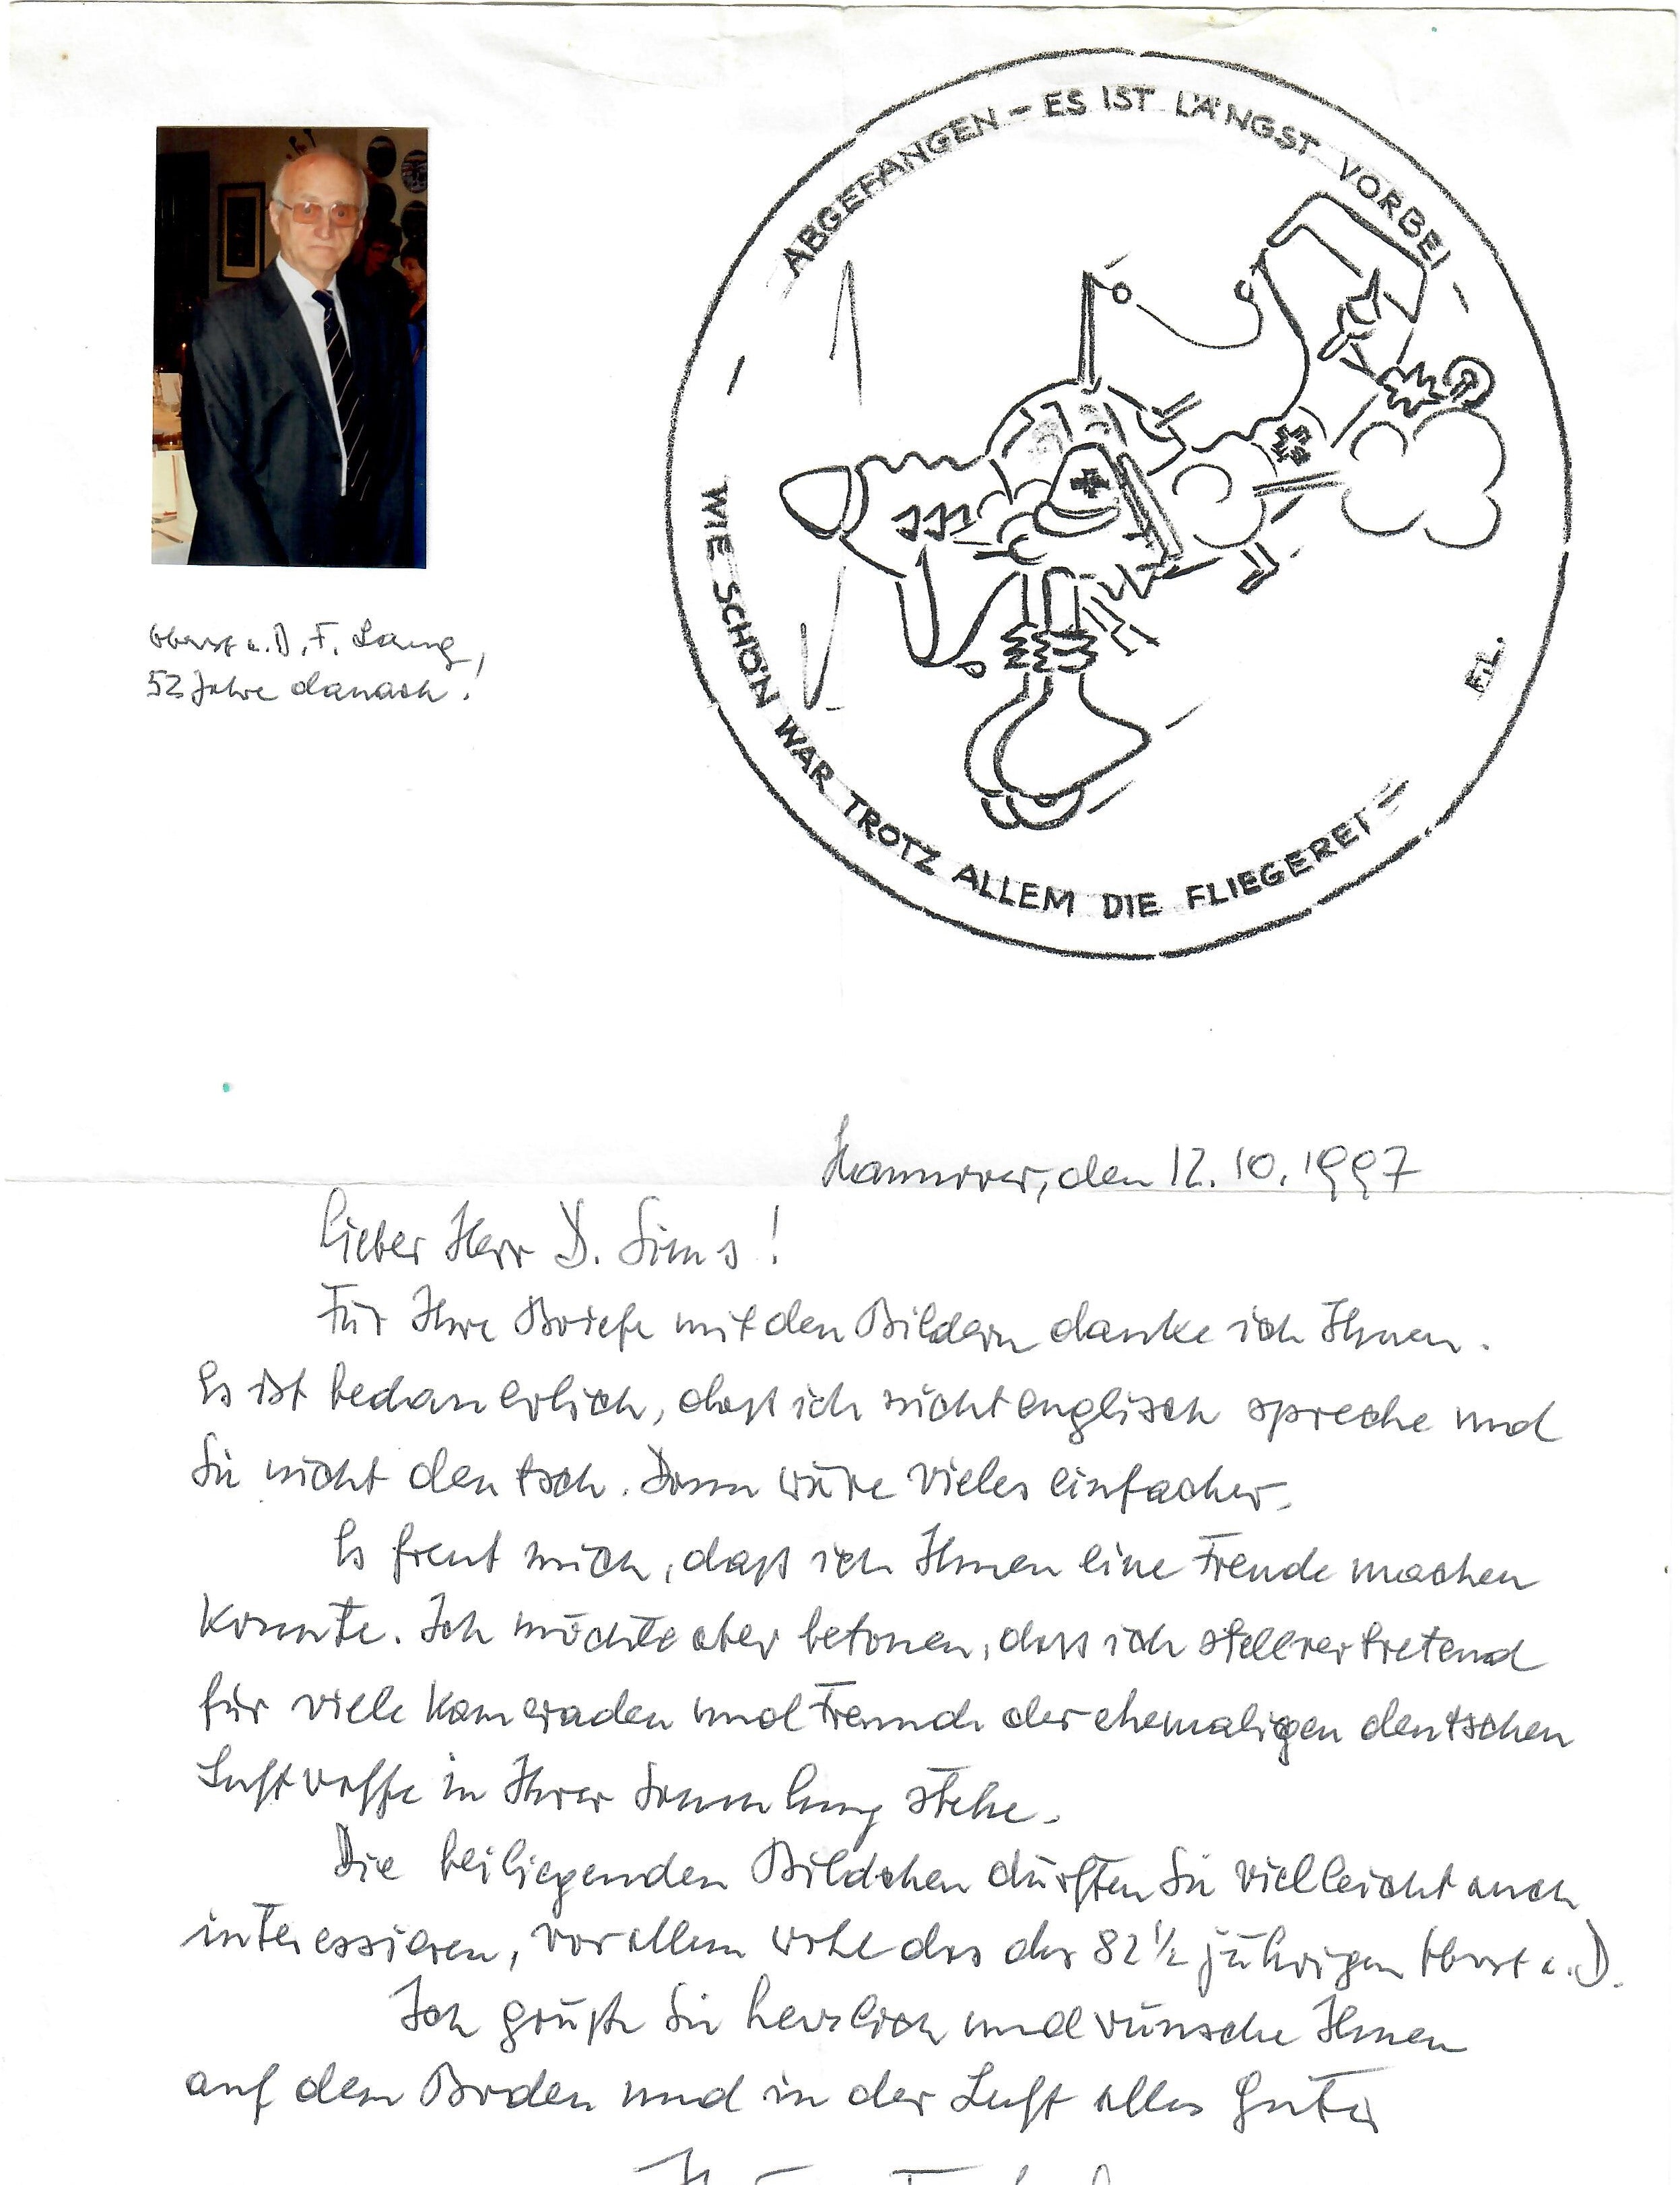 ABGEFANGEN – ES IST LÄNGST VORBEI –
– WIE SCHÖN WAR TROTZ ALLEM DIE FLIEGEREI"
Oberst a.D. F. Lang,
52 Jahre danach!
Hannover, den 12.10.1997
Lieber Herr D. Sims!
Für Ihre Briefe mit den Bildern danke ich Ihnen.
Es ist bedauerlich, daß ich nicht englisch spreche und
Sie nicht deutsch. Dann wäre vieles einfacher.
Es freut mich, daß ich Ihnen eine Freude machen
konnte. Ich möchte aber betonen, dass ich stellvertretend
für viele Kameraden und Freunde der ehemaligen deutschen
Luftwaffe in Ihrer Sammlung stehe.
Die beiliegenden Bildchen dürften Sie vielleicht auch
interessieren, vor allem wohl das des 82½ jährigen Oberst a.D.
Ich grüße Sie herzlich und wünsche Ihnen
auf dem Boden und in der Luft alles Gute